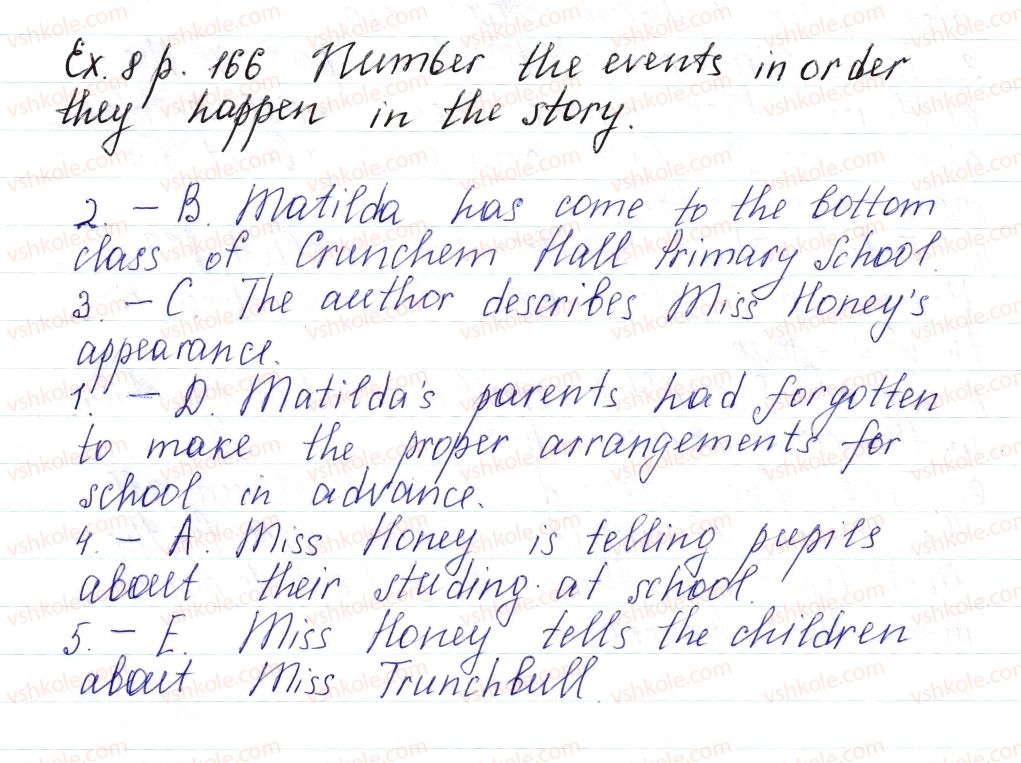 Ex. 8 p. 166 Number the events in order
they happen in the story.
2. - B. Matilda has come to the bottom
class of Crunchem Hall Primary School.
3. - C. The author describes Miss Honey's
appearance.
1. - D. Matilda's parents had forgotten
to make the proper arrangements for
school in advance.
4. - A. Miss Honey is telling pupils
about their studing at school.
5. - E. Miss Honey tells the children
about Miss Trunchbull